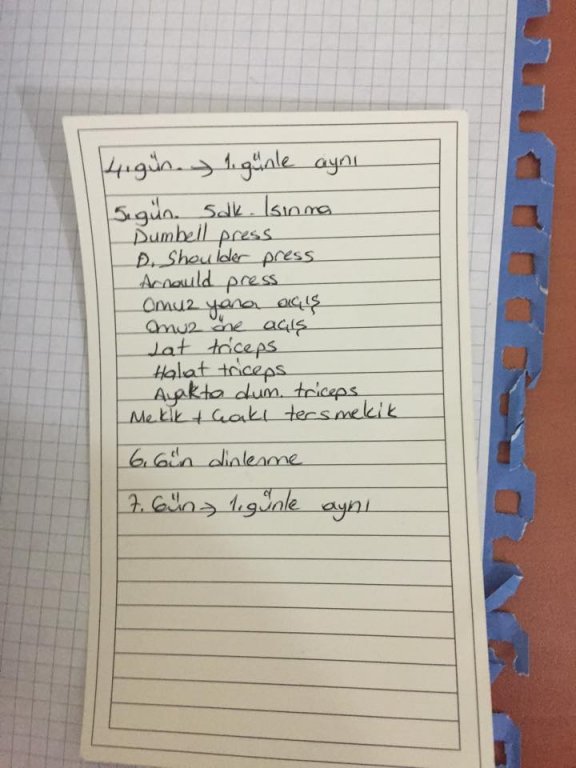 4.gün. → 1.günle aynı
5.gün. 5dk. Isınma
Dumbell press
D. Shoulder press
Arnauld press
Omuz yana açış
Omuz öne açış
Lat triceps
Halat triceps
Ayakta dum. triceps
Mekik + Çakı tersmekik
6.Gün dinlenme
7.Gün → 1.günle aynı